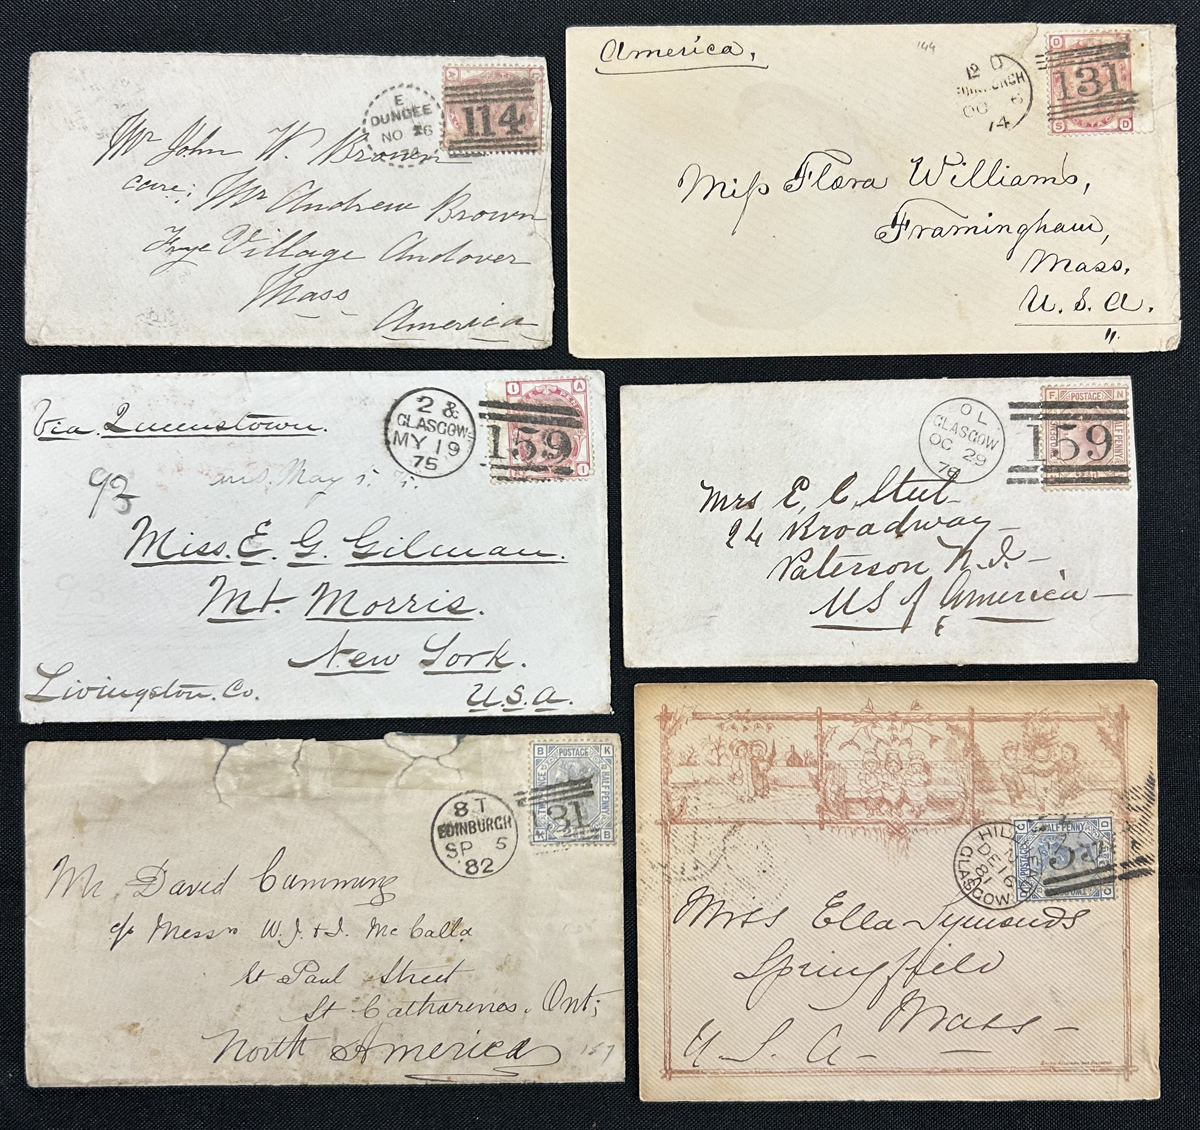 E
DUNDEE
NO 26
114
Mr John W. Brown
care; Mr Andrew Brown
Frye Village Andover
Mass
America
America,
144
12 D
EDINBURGH
OC 6
74
131
O
S D
Miss Flora Williams,
Framingham,
Mass.
U.S.A.
Via Queenstown.
2 &
GLASGOW
MY 19
75
I A
159
I
93
Miss. E. G. Gilman.
Mt. Morris.
New York.
Livingston. Co. U.S.A.
O L
GLASGOW
OC 29
F POSTAGE N
HALF PENNY
159
Mrs E. C. Steel
24 Broadway
Paterson N.J.
US of America
8 T
EDINBURGH
SP 5
82
B POSTAGE K
HALF PENNY
K B
131
Mr David Cumming
c/o Messrs W. J. & J. McCalla
St Paul Street
St Catharines. Ont;
North America
157
GLASGOW
DE 16
81
HALF PENNY
Miss Ella Symonds
Springfield
Mass
U. S. A